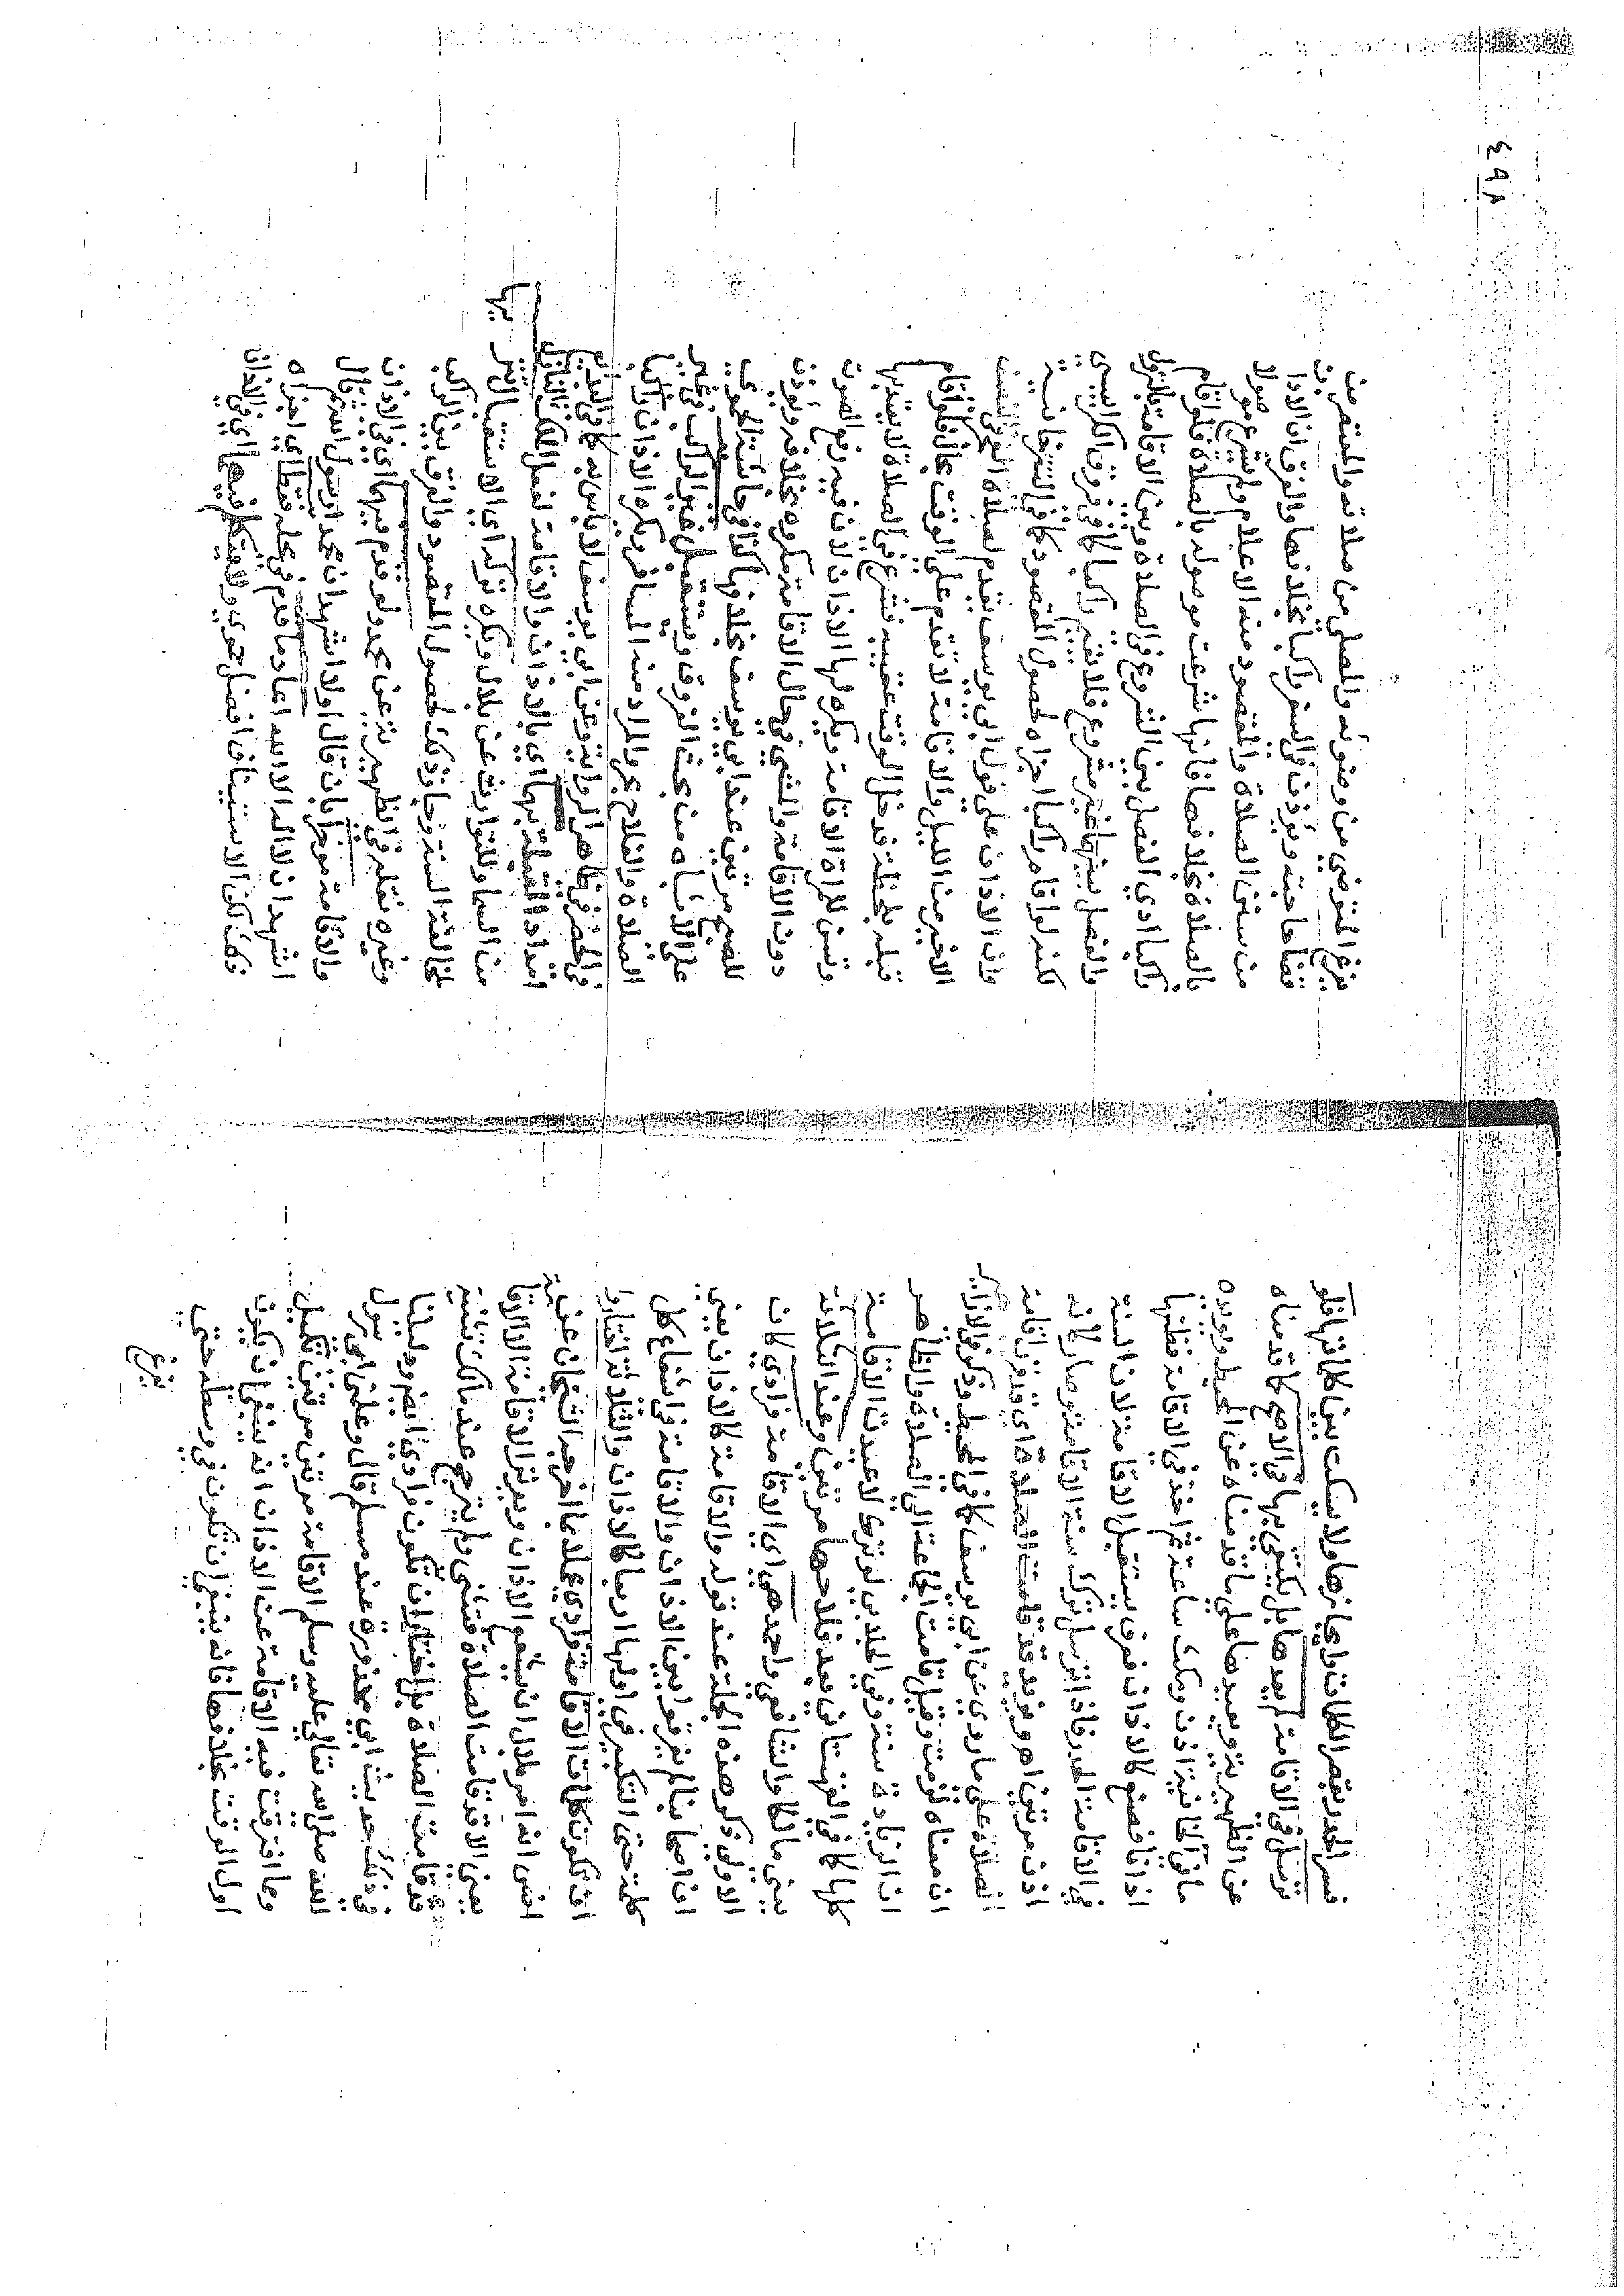 فسر الحدر بقصر الكلمات وايجازها ولا يسكت بين كلماتها فلو
ترسل في الاقامة لم يعدها بل يكتفي بها في الاصح كما قدمناه
عن الظهيرية ويعيدها على ما قدمناه عن المحيط ويؤيده
ما في الخانية اذن ومكث ساعة ثم اخذ في الاقامة فظنها
اذانا فصنع كالاذان فعرف يستقبل الاقامة لان السنة
في الاقامة الحدر فاذا ترسل ترك سنة الاقامة وصار كانه
اذن مرتين اه ويزيد قد قامت الصلاة اي قد قرب اقامة
الصلاة على ما روي عن ابي يوسف كما في المحيط وذكر في
ان معناه لزمت وقيل قامت الجماعة الى الصلاة والظاهر
ان الزيادة سنة وفي الجلابي لو ترك لاعيدت الاقامة
كلها كما في القهستاني بعد فلاحها مرتين وعند الثلاثة
يعني مالكا والشافعي واحمد هي اي الاقامة فرادي كان
الاولى ذكر هذه الجملة عند قوله والاقامة كالاذان يعني
ان اصحابنا لم يفرقوا بين الاذان والاقامة في اشفاع كل
كلمة حتى التكبير في اولها اربعا كالاذان والثلاثة اختاروا
ان تكون كلمات الاقامة فرادي عملا بما اخرجه الشيخان عن
انس انه امر بلال ان يشفع الاذان ويوتر الاقامة الا الاقامة
يعني الا قد قامت الصلاة فتثنى ولم يترجح عند مالك تثنية
قد قامت الصلاة بل اختار ان تكون فرادي ايضا ودليلنا
في ذلك حديث ابي محذورة عند مسلم قال وعلمني اي رسول
الله صلى الله تعالى عليه وسلم الاقامة مرتين مرتين تكميل
ومما افترقت فيه الاقامة عن الاذان انه ينبغي ان يكون
اول الوقت بخلافها فانه ينبغي ان تكون في وسطه حتى
يفرغ
٤٩٨
يفرغ المتوضي من وضوئه والمصلي من صلاته والمعتصر من
قضا حاجته ويؤذن في السفر راكبا بخلافها والفرق ان الاذان
من سنن الصلاة والمقصود منه الاعلام ولم يشرع موصولا
بالصلاة بخلافها فانها شرعت موصولة بالصلاة فلو اقام
راكبا ادي الى الفصل بين الشروع في الصلاة وبين الاقامة بالنزول
والفصل بينهما غير مشروع فلا يقيم راكبا كما في فروق الكرابيسي
لكنه لو اقام راكبا اجزاه لحصول المقصود كما في التترخانية
وان الاذان على قول ابي يوسف يقدم لصلاة الفجر في النصف
الاخير من الليل والاقامة لا تقدم على الوقت بحال فلو اقام
قبله بلحظة فدخل الوقت عقيبه فشرع في الصلاة لا يعتد بها
وتسن للمراة الاقامة ويكره لها الاذان لان فيه رفع الصوت
دون الاقامة والمشي في حال الاقامة مكروه بخلافه ويؤذن
للصبح مرتين عند ابي يوسف بخلافها كذا في حاشية الحموي
على الاشباه من بحث الفروق ويستقبل غير الراكب في غير
الصلاة والفلاح بحر والمراد منه المسافر ويكره الاذان راكبا
في الحضر في ظاهر الرواية وعن ابي يوسف لا باس به كما في البدايع
اقتداء القبلة بهما اي بالاذان والاقامة لفعل الملك النازل
من السما وللتوارث عن بلال ويكره تركه اي الاستقبال تنزيها
لمخالفة السنة وجاز ذلك لحصول المقصود والفرق بين الراكب
وغيره نقله في الظهيرية عن محمد ولو قدم فيهما اي في الاذان
والاقامة موخرا بان قال اولا اشهد ان محمدا رسول الله ثم قال
اشهد ان لا اله الا الله اعاد ما قدم في محله فقط اي اجزاه
ذلك لكن الاستيناف افضل حموي ولا يتكلم فيهما اي في الاذان